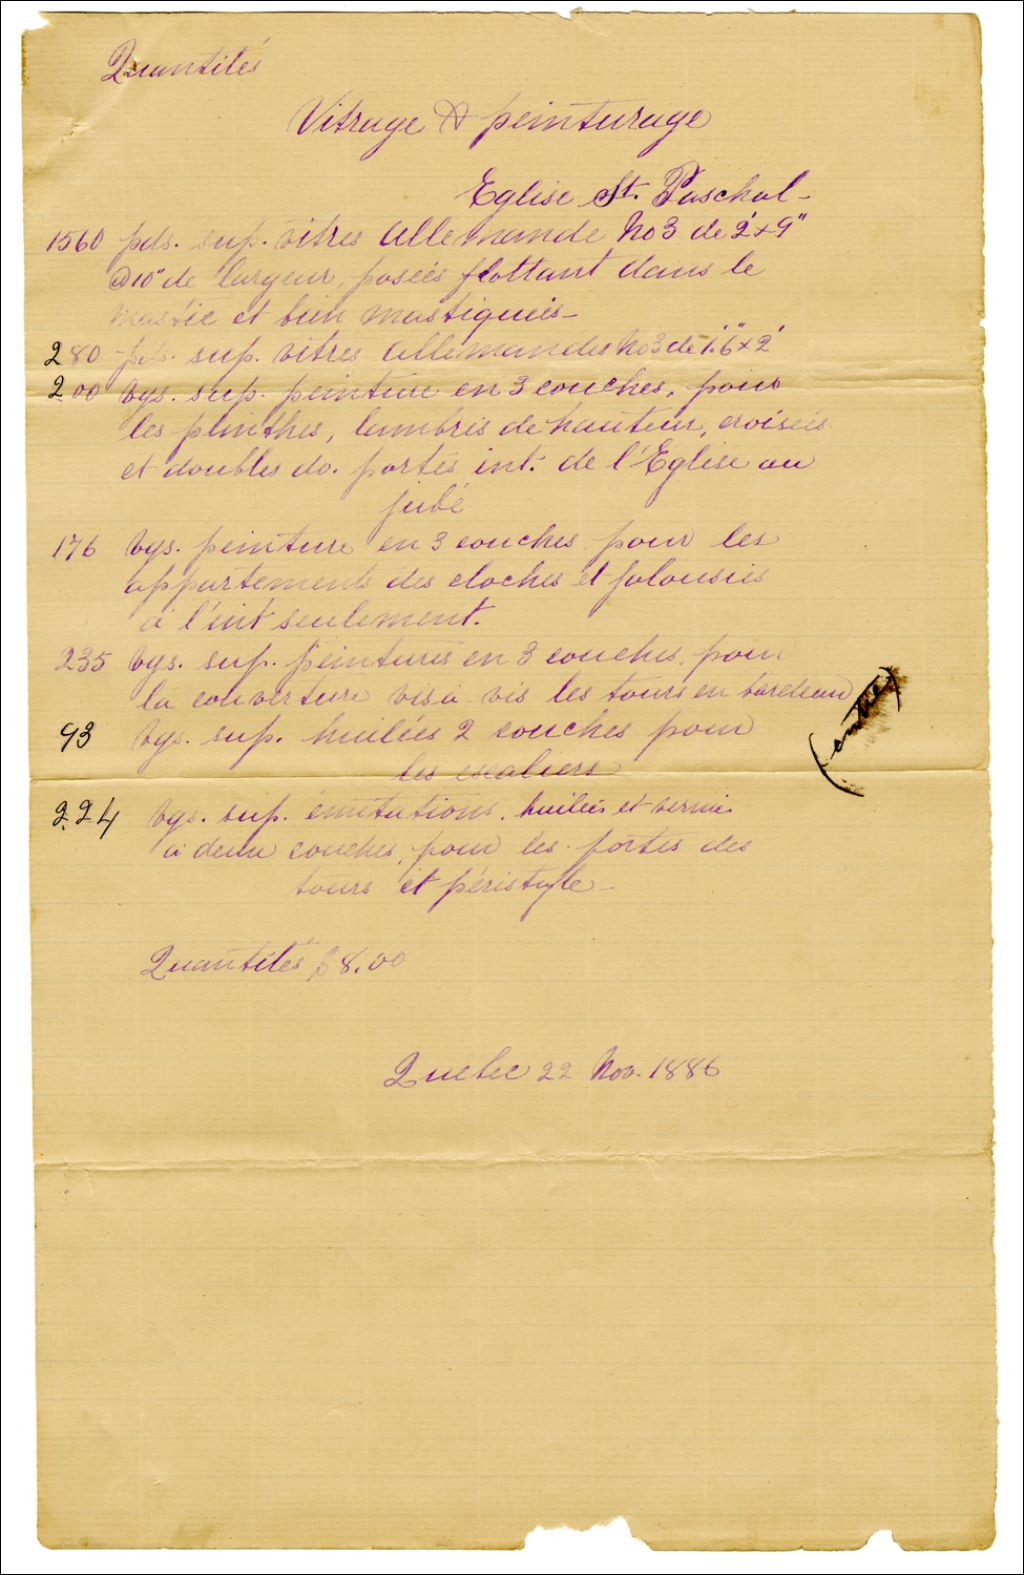 Quantités
Vitrage & peinturage
Eglise St. Paschal -
1560 pds. sup. vitres Allemande No 3 de 2' x 9"
@ 10" de largeur, posées flottant dans le
mastic et bien mastiquées -
280 pds. sup. vitres Allemandes No 3 de 1'.6" x 2'
200 vgs. sup. peinture en 3 couches, pour
les plinthes, lambris de hauteur, croisées
et doubles do. portes int. de l'Eglise au
jubé
176 vgs. peinture en 3 couches pour les
appartements des cloches et jalousies
à l'int seulement.
235 vgs. sup. peintures en 3 couches, pour
la couverture vis à vis les tours en bardeau
93 vgs. sup. huilées 2 couches pour
les escaliers
224 vgs. sup. imitations, huilées et vernis
à deux couches, pour les portes des
tours et péristyle -
Quantités $8.00
Quebec 22 Nov. 1886